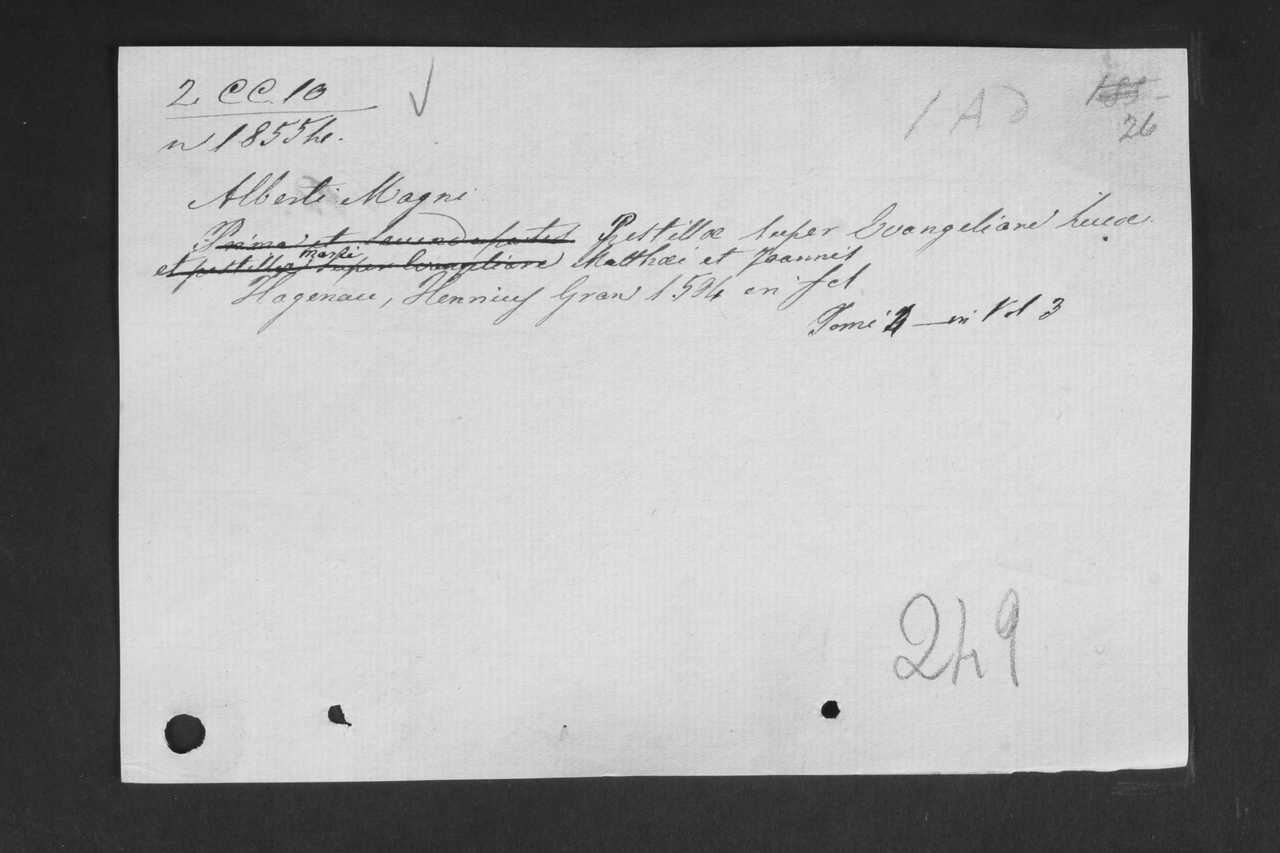 2 CC. 10
n 1855 he.
1 A
26
Alberti Magni
Prima et secunda partes Postillæ super Evangelium Lucæ
et postilla Marci super Evangelium Matthæi et Joannis
Hagenau, Henricus Gran 1504 in fol
Tomi 4 — in Vol 3
249